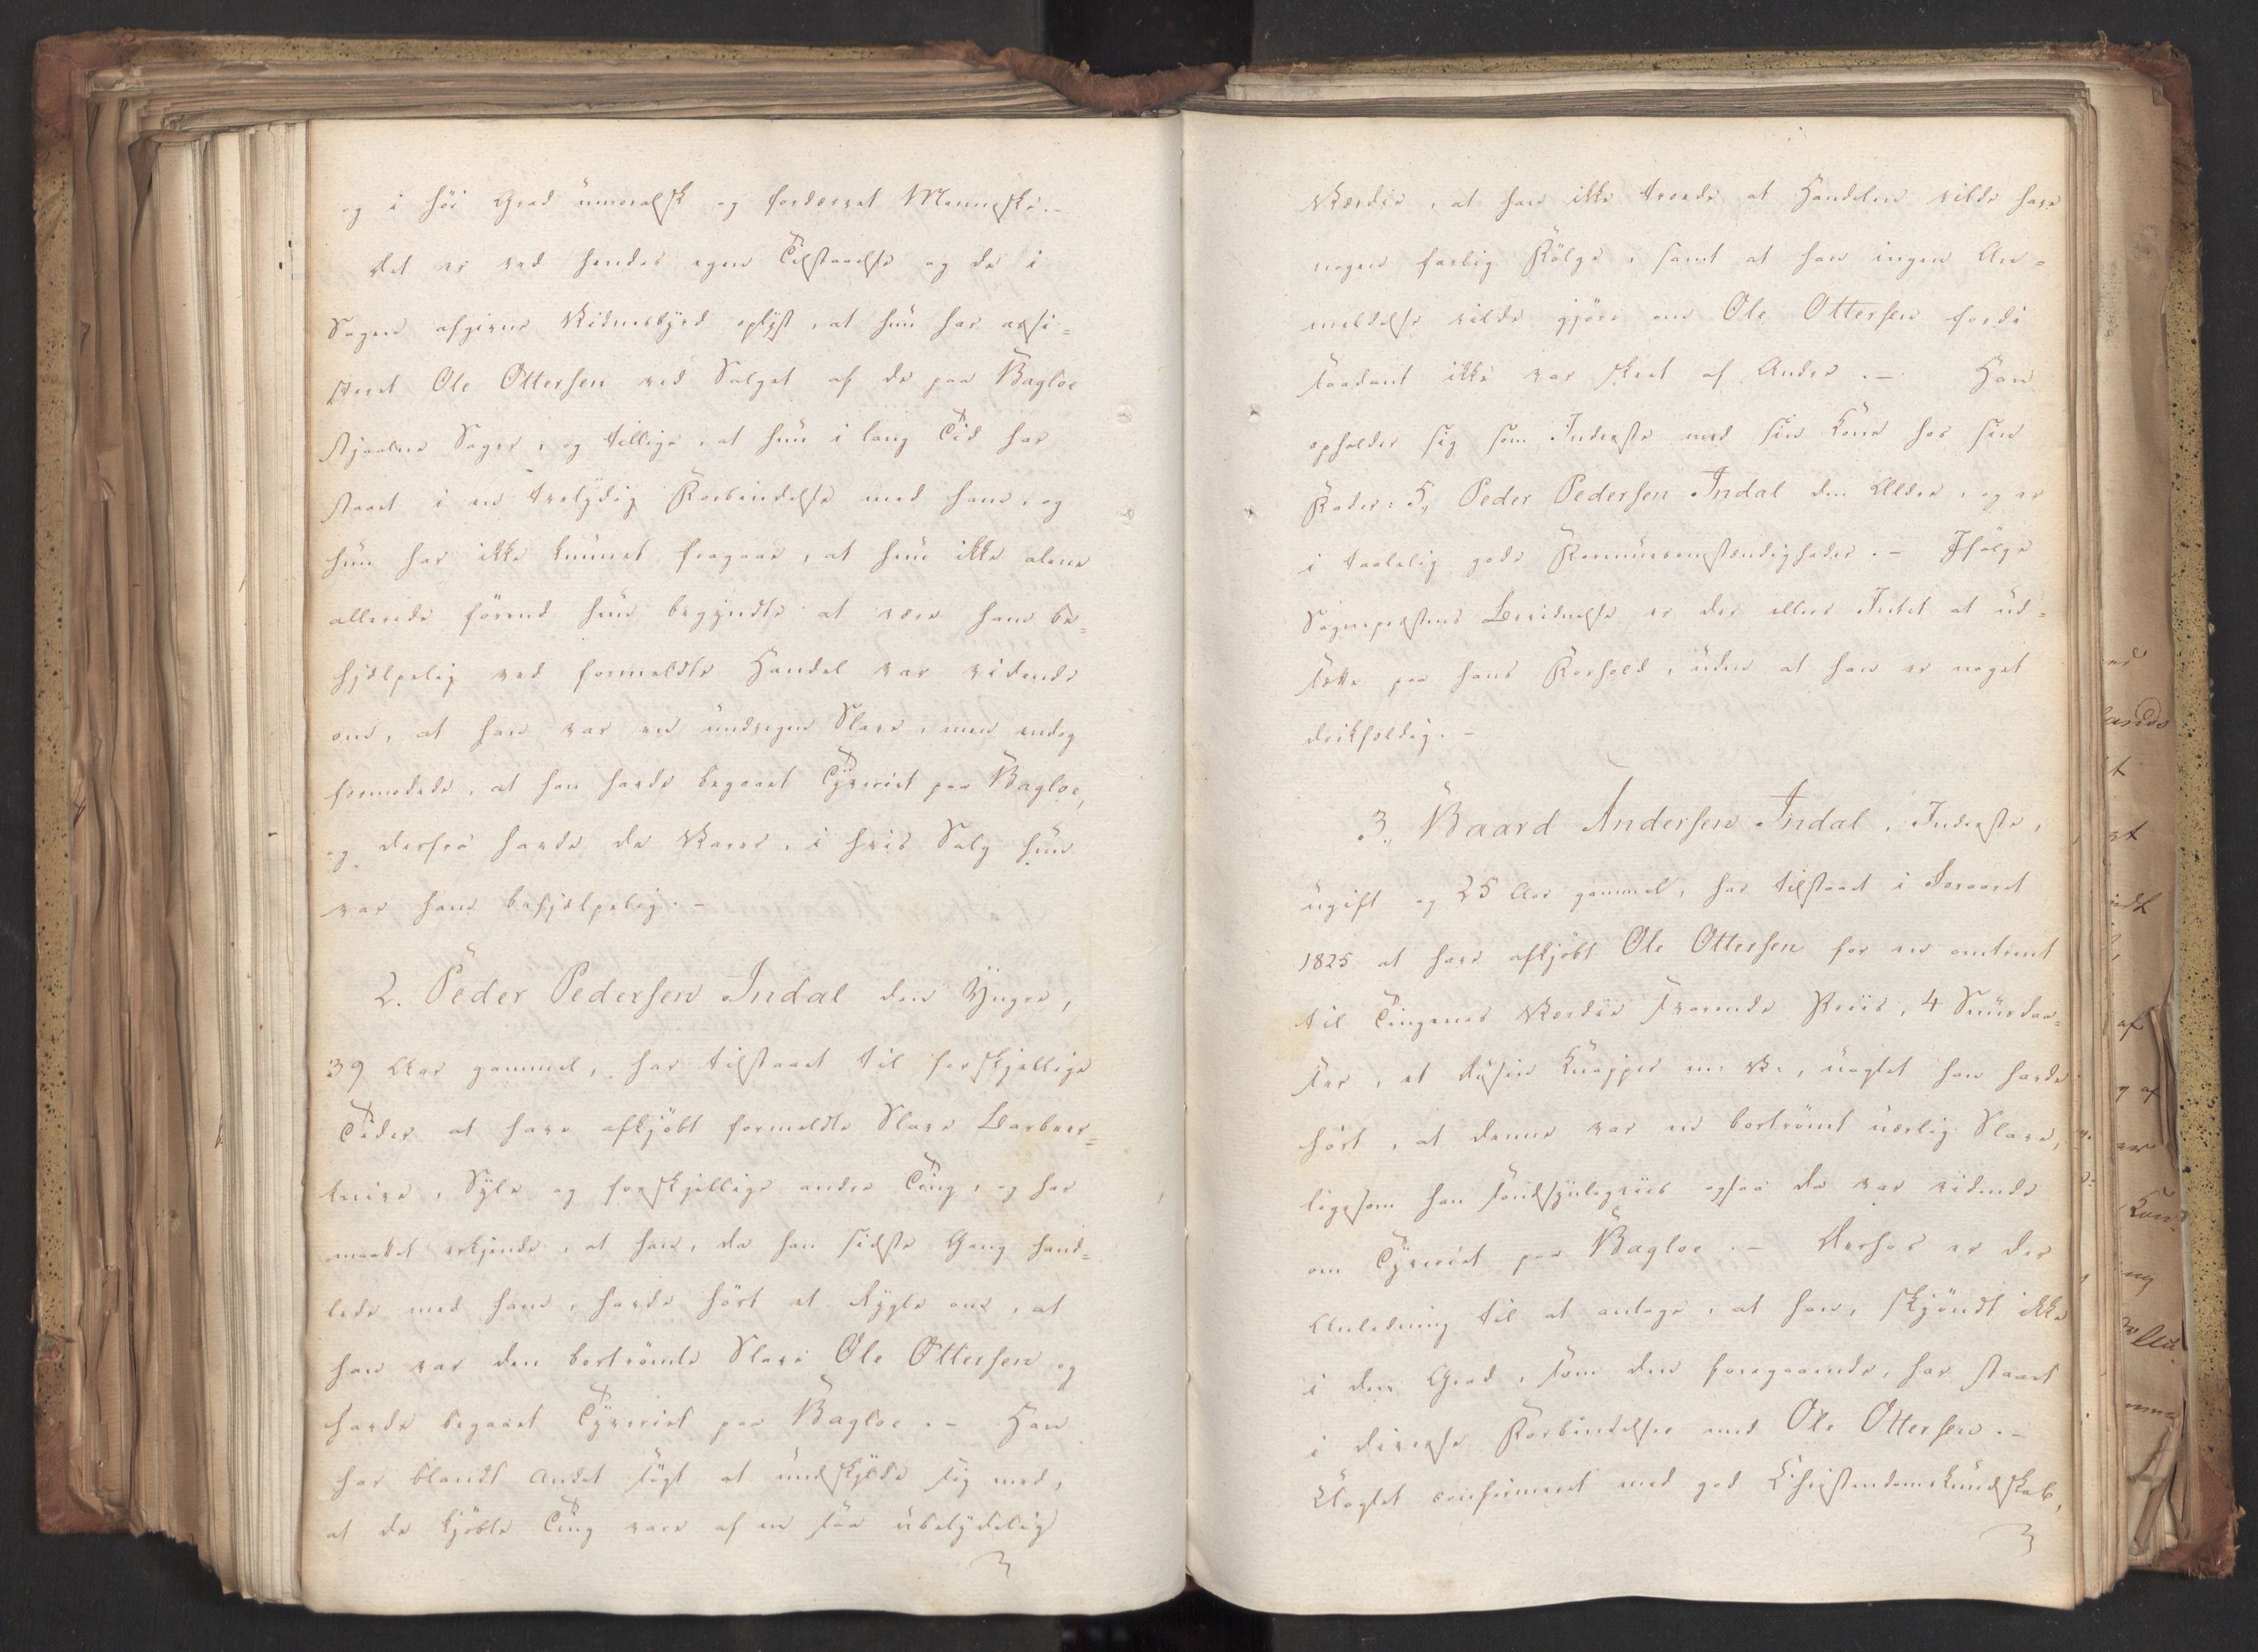 og i høi Grad umoralsk og fordærvet Menneske.-
Det er ved hendes egen Tilstaaelse og de i
Sagen afgivne Vidnesbyrd oplyst, at hun har assi-
steret Ole Ottersen ved Salget af de paa Bagloe
stjaalne Sager, og tillige, at hun i lang Tid har
staaet i en utvetydig Forbindelse med ham, og
hun har ikke kunnet fragaae, at hun ikke alene
allerede förend hun begyndte at være ham be-
hjelpelig ved formeldte Handel var vidende
om, at han var en undvegen Slave, men endog
formodede, at han havde begaaet Tyveriet paa Bagloe,
og derfra havde de Varer, i hvis Salg hun
var ham behjelpelig.-
2. Peder Pedersen Indal den Yngre,
39 Aar gammel, har tilstaaet til forskjellige
Tider at have afkjöbt formeldte Slave Barbeer-
knive, Syle og forskjellige andre Ting, og har
maattet erkjende, at han, da han sidste Gang hand-
lede med ham, havde hört et Rygte om, at
han var den bortrömte Slave Ole Ottersen og
havde begaaet Tyveriet paa Bagloe.- Han
har blandt Andet sögt at undskylde sig med,
at de kjöbte Ting vare af en saa ubetydelig
Værdie, at han ikke troede at Handelen vilde have
nogen farlig Fölge, samt at han ingen An-
meldelse vilde gjöre om Ole Ottersen fordi
saadant ikke var skeet af Andre.- Han
opholder sig som Inderste med sin Kone hos sin
Fader: S., Peder Pedersen Indal den Ældre, og er
i taalelig gode Formuesomstændigheder.- Ifölge
Sognepræstens Bevidnelse er der ellers Intet at ud-
sætte paa hans Forhold, uden at han er noget
drikfældig.-
3., Baard Andersen Indal, Inderste,
ugift og 25 Aar gammel, har tilstaaet i Foraaret
1825 at have afkjöbt Ole Ottersen for en omtrent
til Tingenes Værdie svarende Priis, 4 Snuusdaa-
ser, et Dusin Knapper m: V:, uagtet han havde
hört, at denne var en bortrömt uærlig Slave,
ligesom han sandsynligviis ogsaa da var vidende
om Tyveriet paa Bagloe.- Derhos er der
Anledning til at antage, at han, skjöndt ikke
i den Grad, som den foregaaende, har staaet
i diverse Forbindelser med Ole Ottersen.-
Uagtet confirmeret med god Christendomskundskab,